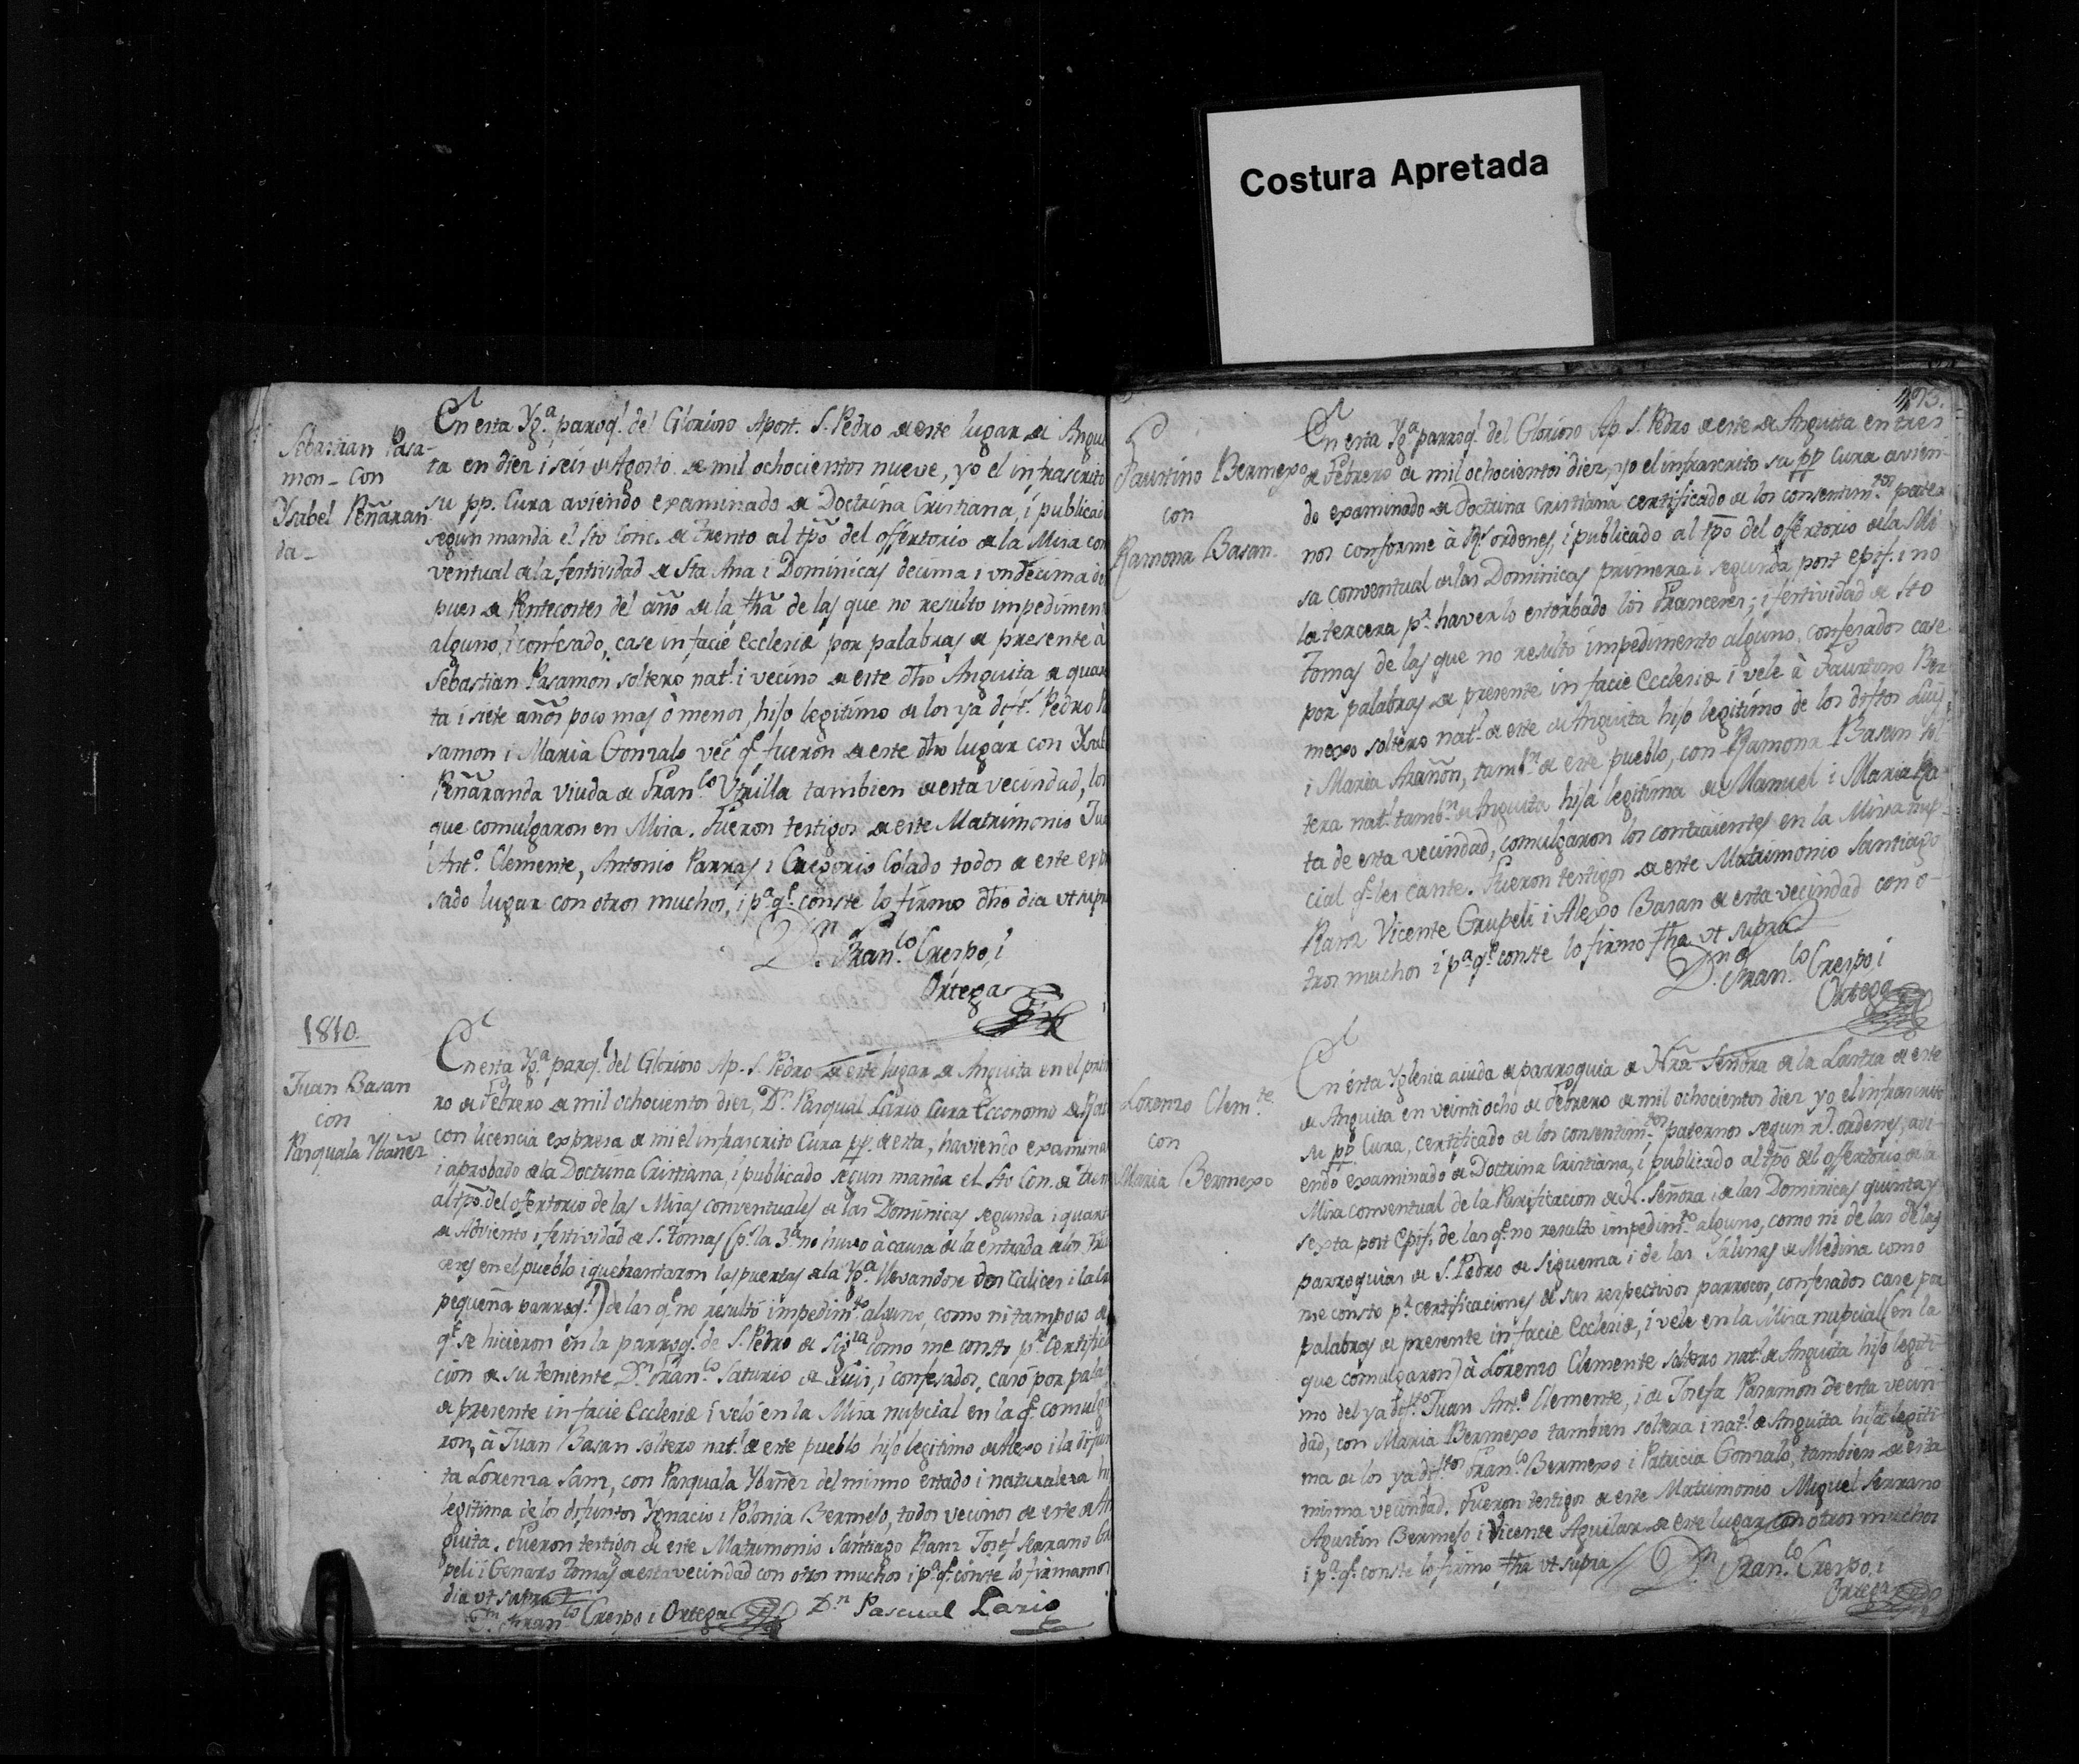 Costura Apretada
Sebastian Pasa-
mon - con
Ysabel Peñaran
da -
En esta Yg.ª parroq.l del Glorioso Apost. S. Pedro de este lugar de Angui
ta en diez i seis de Agosto de mil ochocientos nueve, yo el infrascrito
su pp. Cura aviendo examinado de Doctrina Cristiana, i publicado
segun manda el Sto Conc. de Trento al tpo del offertorio de la Misa con
ventual de la festividad de Sta Ana i Dominicas decima i undecima des
pues de Pentecostes del año de la fha de las que no resulto impedimen
alguno, i confesado, case in facie Ecclesiæ por palabras de presente à
Sebastian Pasamon soltero nat.l i vecino de este dho Anguita de quaren
ta i siete años poco mas ò menos, hijo legitimo de los ya dif.s Pedro Pa
samon i Maria Gonzalo vec.s q.e fueron de este dho lugar con Ysabel
Peñaranda viuda de Fran.co Utrilla tambien de esta vecindad, los
que comulgaron en Misa. Fueron testigos de este Matrimonio Juan
Ant.o Clemente, Antonio Parras i Gregorio Colado todos de este expre
sado lugar con otros muchos, i p.a q.e conste lo firmo dho dia ut supra
D.n Fran.co Crespo, i
Ortega
1810.
Juan Basan
con
Pasquala Ybañez
En esta Yg.a parroq.l del Glorioso Ap. S. Pedro de este lugar de Anguita en el prime
ro de Febrero de mil ochocientos diez, D.n Pasqual Lario Cura Ecconomo de
con licencia expresa de mi el infrascrito Cura pp. de esta, haviendo examinado
i aprobado de la Doctrina Cristiana, i publicado segun manda el Sto Con. de Trento
al tpo del ofertorio de las Misas conventuales de las Dominicas segunda i quarta
de Adviento i festividad de S. Tomas (p.r la 3.a no huvo à causa de la entrada de los Fran
ceses en el pueblo i quebrantaron las puertas de la Yg.a llevandose dos Calices i la
pequeña parroq.l) de las q.e no resultò impedim.to alguno, como ni tampoco de
q.e se hicieron en la parroq.l de S. Pedro de Sig.za como me consto p.r certifica
cion de su teniente D.n Fran.co Saturio de Ruiz, i confesados, casò por palabras
de presente in facie Ecclesiæ i velò en la Misa nupcial en la q.e comulga
ron, à Juan Basan soltero nat.l de este pueblo hijo legitimo de Alexo i la difun
ta Lorenza Sanz, con Pasquala Ybañez del mismo estado i naturaleza hija
legitima de los difuntos Ygnacio i Polonia Bermejo, todos vecinos de este de An
guita. Fueron testigos de este Matrimonio Santiago Ranz Josef Serrano Gru
peli i Genaro Tomas de esta vecindad con otros muchos i p.a q.e conste lo firmamos
dia ut supra
D.n Fran.co Crespo i Ortega D.n Pascual Lario
173.
Faustino Bermexo
con
Ramona Basan
En esta Yg.a parroq.l del Glorioso Ap. S. Pedro de este de Anguita en tres
de Febrero de mil ochocientos diez, yo el infrascrito su pp Cura avien-
do examinado de Doctrina Cristiana certificado de los consentim.tos pater
nos conforme à R.s ordenes, i publicado al tpo del offertorio de la Mi
sa conventual de las Dominicas primera i segunda post epif. i no
la tercera p.r haverlo estorbado los Franceses; i festividad de Sto
Tomas de las que no resulto impedimento alguno, confesados case
por palabras de presente in facie Ecclesiæ i vele à Faustino Ber
mexo soltero nat.l de este de Anguita hijo legitimo de los diftos Luis
i Maria Arañon, tamb.n de este pueblo, con Ramona Basan sol
tera nat.l tamb.n de Anguita hija legitima de Manuel i Maria Ra
ta de esta vecindad, comulgaron los contraientes en la Misa nup-
cial q.e les cante. Fueron testigos de este Matrimonio Santiago
Ranz Vicente Grupeli i Alexo Basan de esta vecindad con o-
tros muchos i p.a q.e conste lo firmo fha ut supra
D.n Fran.co Crespo, i
Ortega
Lorenzo Clem.te
con
Maria Bermexo
En esta Yglesia aiuda de parroquia de Nra Señora de la Lastra de este
de Anguita en veinti ocho de Febrero de mil ochocientos diez yo el infrascrito
su pp Cura, certificado de los consentim.tos paternos segun r.s ordenes, avi-
endo examinado de Doctrina Cristiana, i publicado al tpo del offertorio de la
Misa conventual de la Purificacion de N. Señora i de las Dominicas quinta y
sexta post Epif. de las q.e no resulto impedim.to alguno, como ni de las de las
parroquias de S. Pedro de Siguenza i de las Salinas de Medina como
me consto p.r certificaciones de sus respectivos parrocos, confesados case por
palabras de presente in facie Ecclesiæ, i vele en la Misa nupcial (en la
que comulgaron) à Lorenzo Clemente soltero nat.l de Anguita hijo legiti-
mo del ya dif.to Juan Ant.o Clemente, i de Josefa Pasamon de esta vecin-
dad, con Maria Bermexo tambien soltera i nat.l de Anguita hija legiti-
ma de los ya dif.tos Fran.co Bermexo i Patricia Gonzalo, tambien de esta
misma vecindad. Fueron testigos de este Matrimonio Miguel Serrano
Agustin Bermejo i Vicente Aguilar de este lugar con otros muchos
i p.a q.e conste lo firmo fha ut supra // D.n Fran.co Crespo, i
Ortega